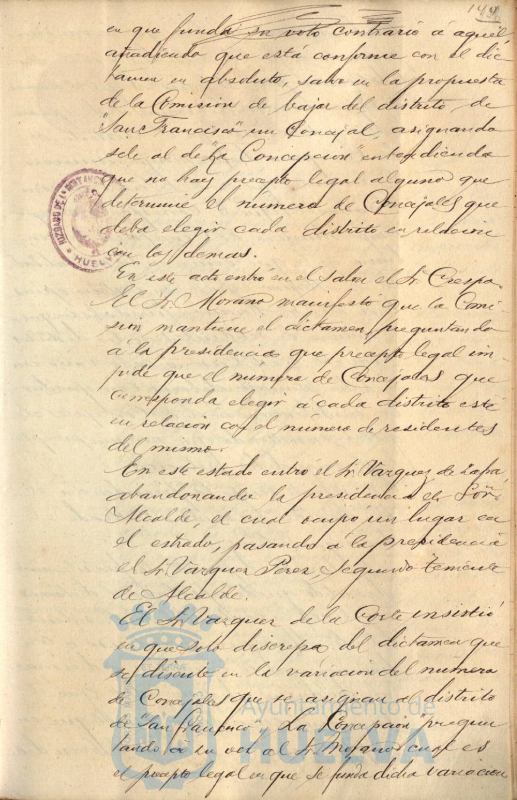 en que funda su voto contrario á aquél,
añadiendo que está conforme con el dic-
tamen en absoluto, salvo en la propuesta
de la Comisión de bajar del distrito de
"San Francisco" un Concejal, asignando
selo al de "La Concepcion" entendiendo
que no hay precepto legal alguno que
determine el número de Concejales que
deba elegir cada distrito en relación
con los demas.
En este acto entró en el Salon el Sr. Crespo.
El Sr. Morano manifestó que la Comi
sion mantiene el dictamen, preguntando
á la presidencia que precepto legal im-
pide que el número de Concejales que
corresponda elegir á cada distrito esté
en relación con el número de residentes
del mismo.
En este estado entró el Sr. Vazquez de Zafra,
abandonando la presidencia el Señor
Alcalde, el cual ocupó un lugar en
el estrado, pasando á la presidencia
el Sr. Vazquez Perez, Segundo teniente
de Alcalde.
El Sr. Vazquez de la Corte insistió
en que solo discrepa del dictamen que
se discute en la variación del número
de Concejales que se asignan al distrito
de "San Francisco" La Concepcion" pregun
tando á su vez al Sr. Morano cual es
el precepto legal en que se funda dicha variacion
HUELVA
Ayuntamiento de
HUELVA